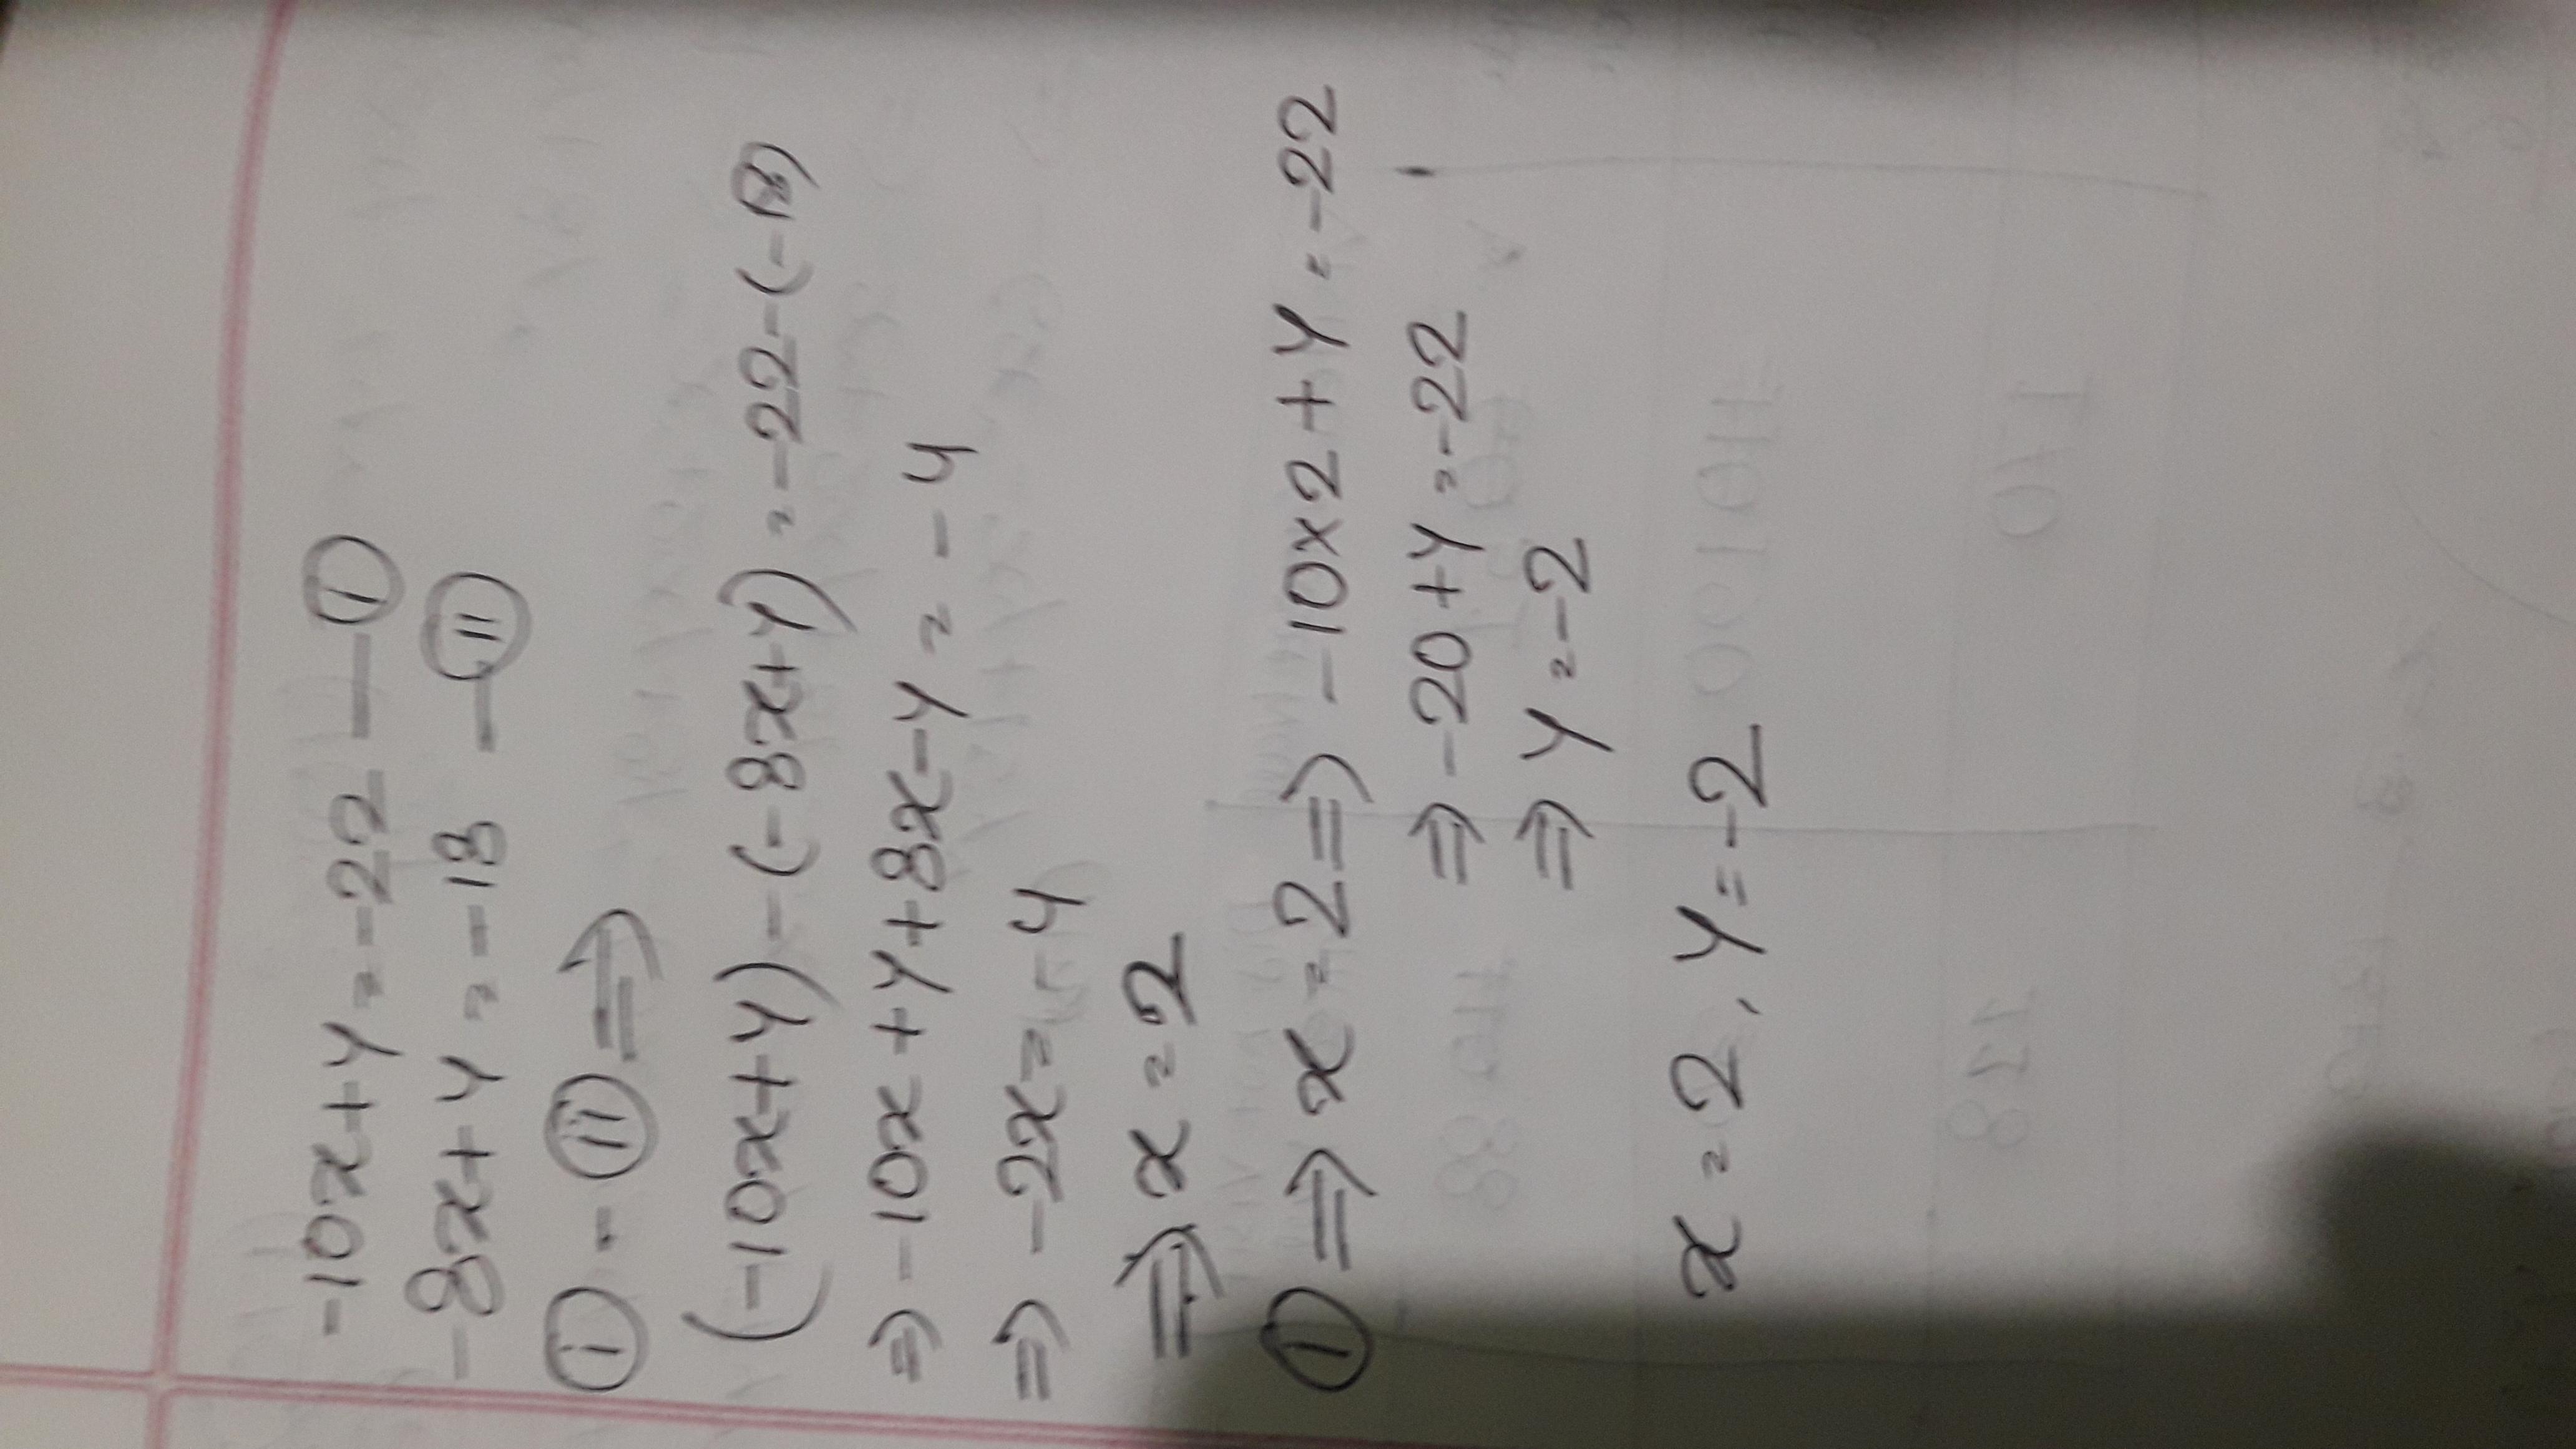 -10x+y=-22 — (i)
-8x+y=-18 — (ii)
(i) - (ii) ⇒
(-10x+y)-(-8x+y)=-22-(-18)
⇒ -10x+y+8x-y=-4
⇒ -2x=-4
⇒ x=2
(i) ⇒ x=2 ⇒ -10x2+y=-22
⇒ -20+y=-22
⇒ y=-2
x=2, y=-2